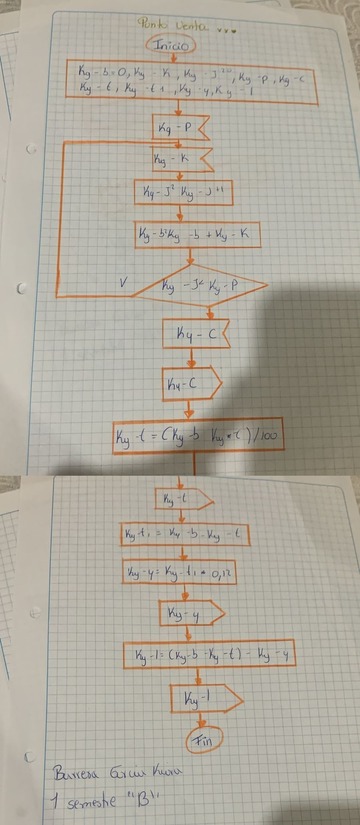 Punto Venta
Inicio
Ky-b=0, Ky-K, Ky-J, Ky-P, Ky-C
Ky-t, Ky-t1, Ky-y, Ky-1
Ky-P
Ky-K
Ky-J² Ky-J+1
Ky-b¹Ky-b+Ky-K
V
Ky-J< Ky-P
Ky-C
Ky-C
Ky-t=(Ky-b Ky*c)/100
Ky-t
Ky-t1=Ky-b-Ky-t
Ky-y=Ky-t1*0,12
Ky-y
Ky-1=(Ky-b-Ky-t)-Ky-y
Ky-1
Fin
1 semestre "B"